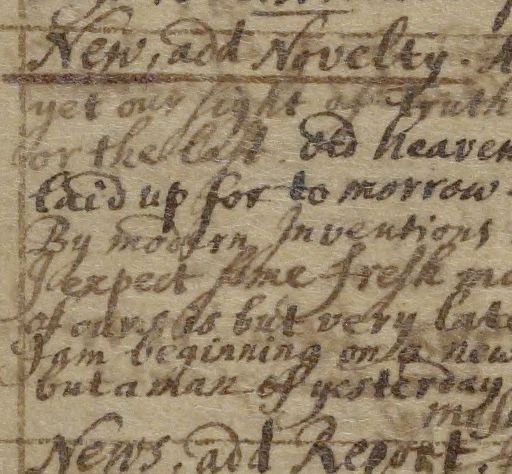 New, add Novelty.
yet our sight of Truth
or the last. Did heaven
laid up for to morrow
By modern Inventions
I expect some fresh
of ours is but very late
I am beginning on a new
but a man of yesterday
News, add Report